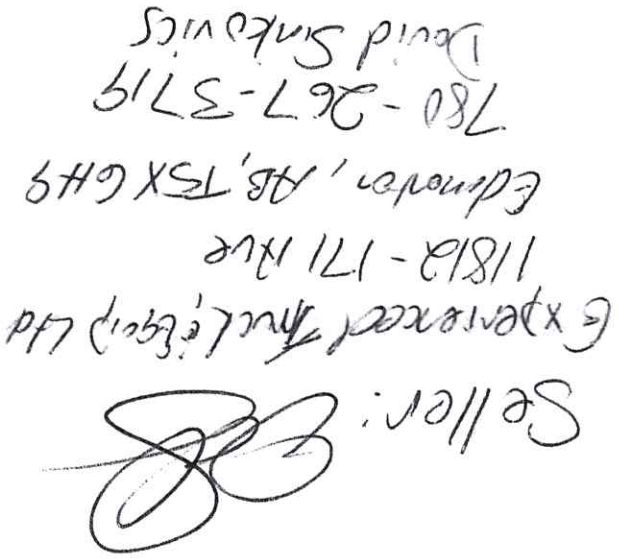 Seller:
Experienced Truck & Equip Ltd
11812 - 171 Ave
Edmonton, AB, T5X 6H9
780 - 267-3719
David Sinkovics